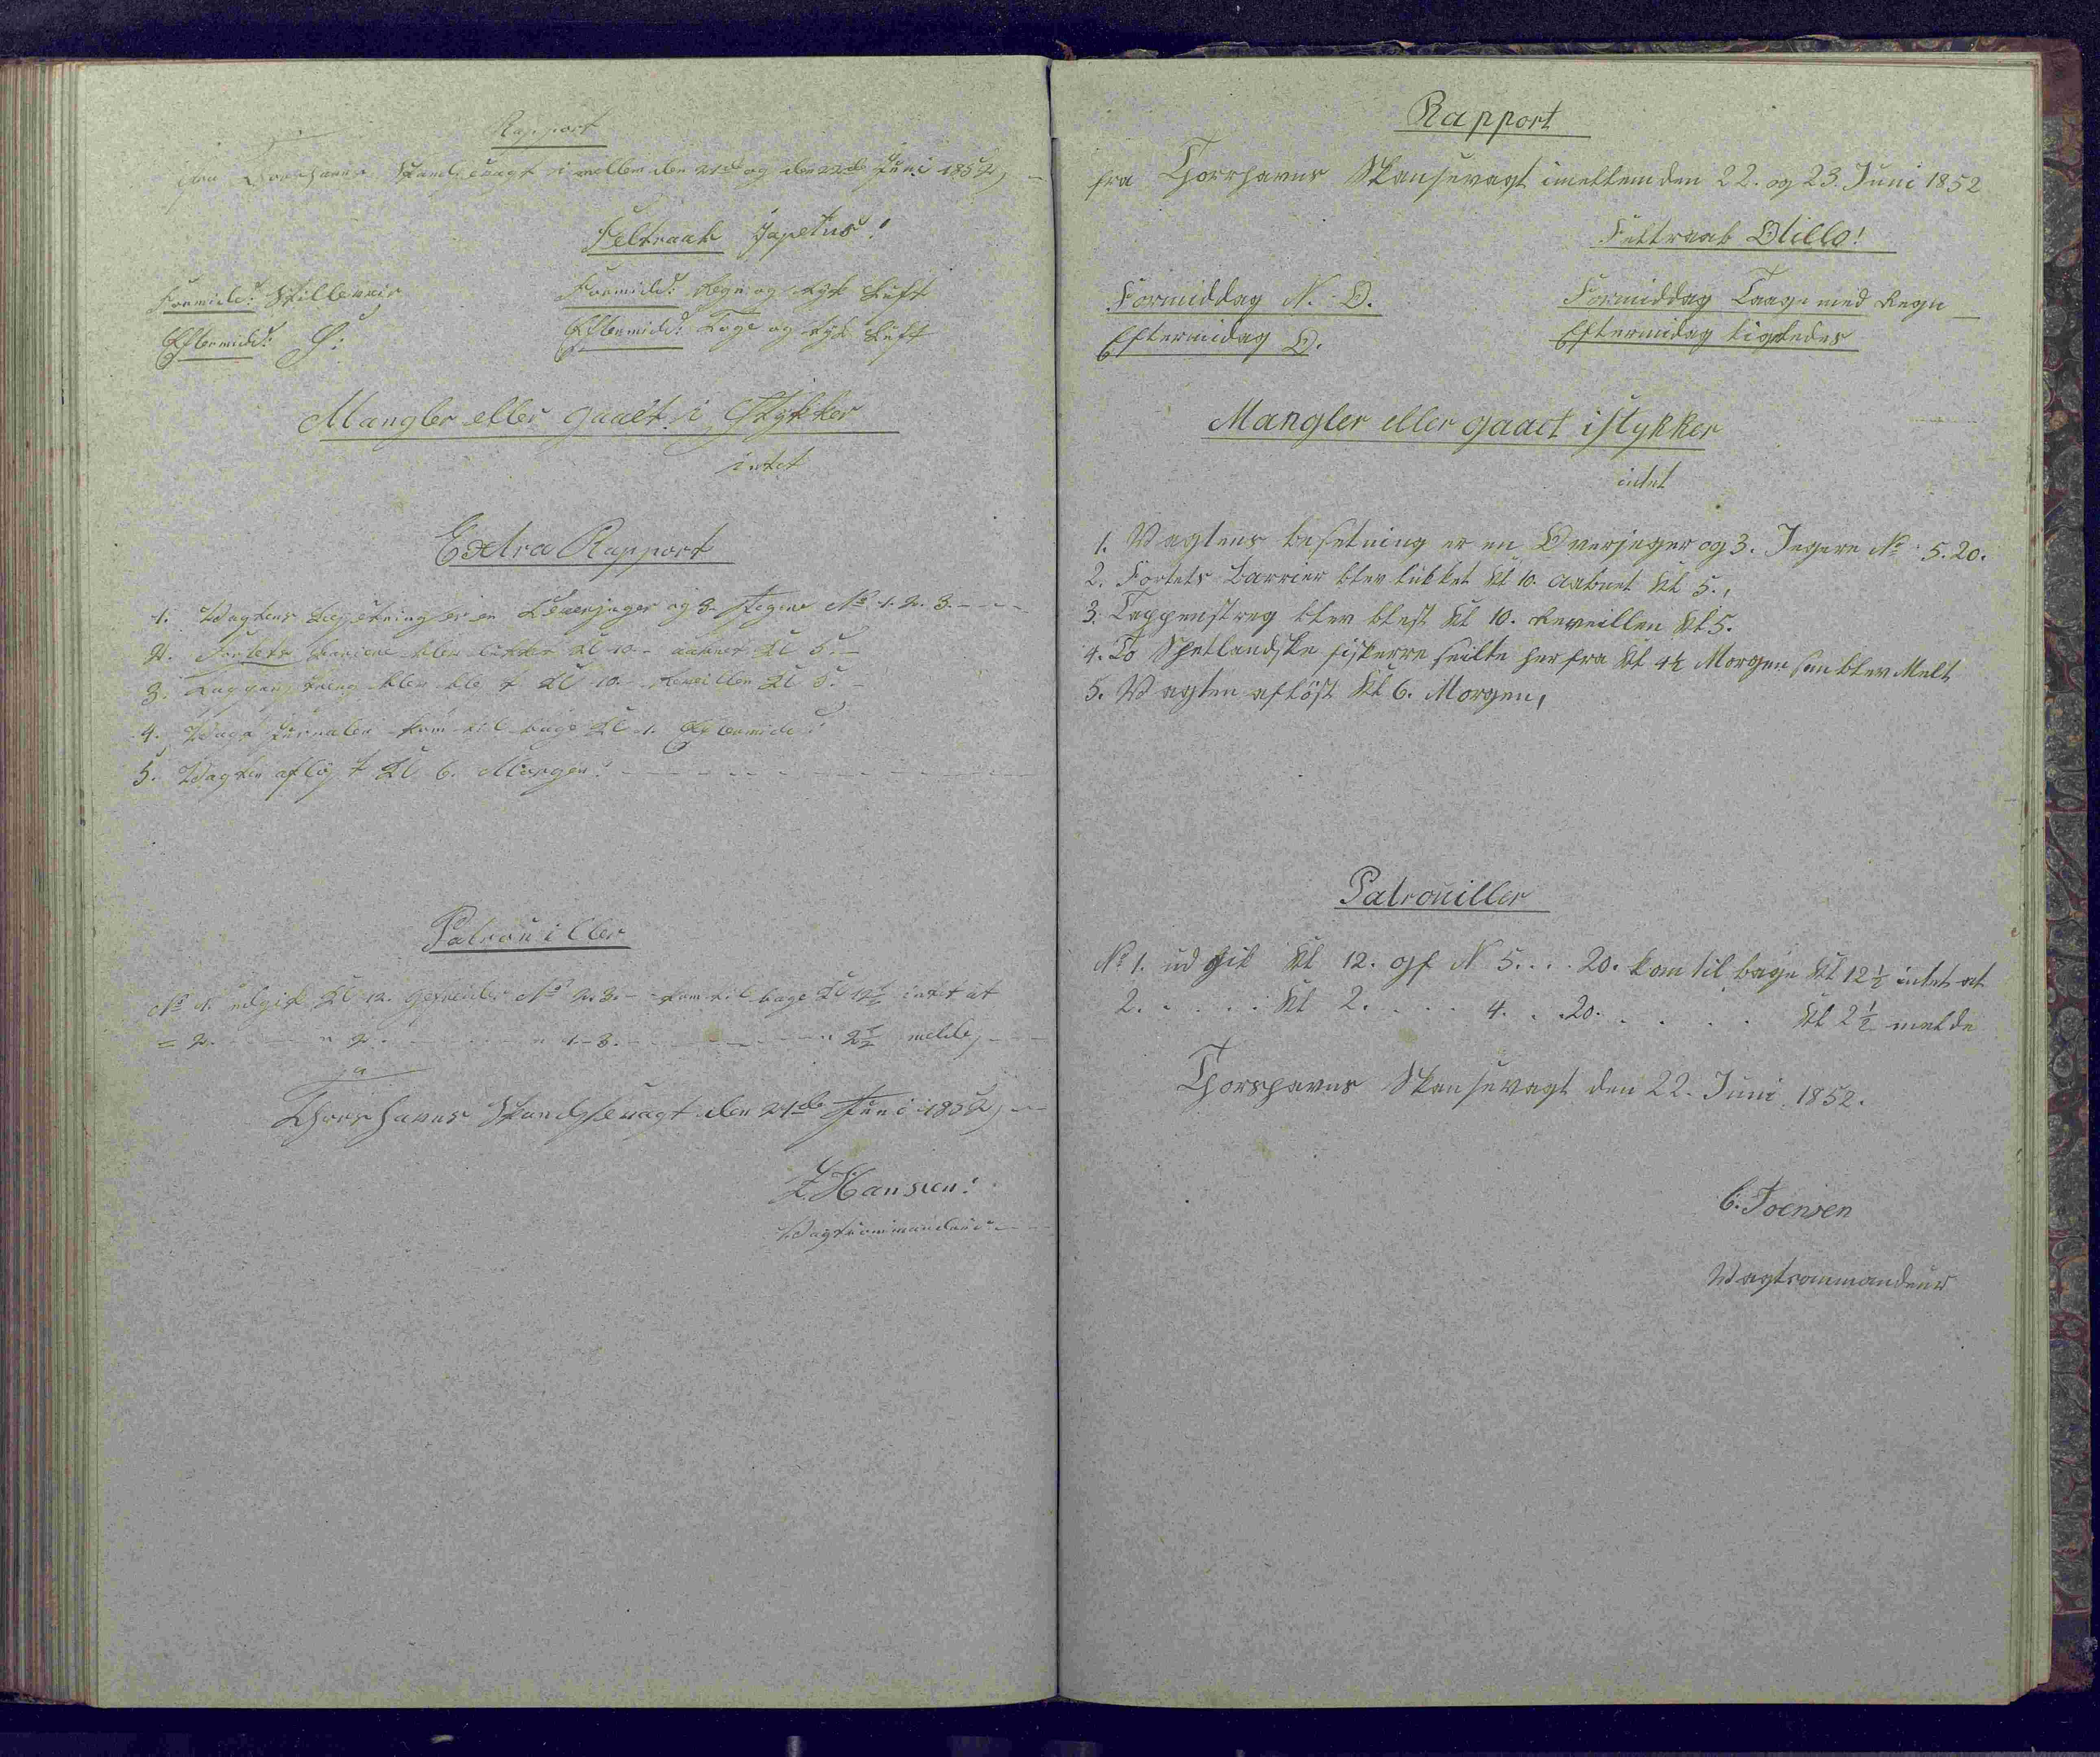 Rapport
fra Thorshavns Skandsevagt imellem den 21de og den 22de Juni 1852,
Feltraab Japetus!
Formidd: Stillevair
Formidd: Regn og tyk Luft
Eftermidd: S:
Eftermidd: Toge og tyk Luft
Mangler eller gaaet i Stykker
intet
Extra Rapport
1. Vagtens besetning er en Overjeger og 3. Jegere No 1. 2. 3.
2. Fortets bariere blev lukket Kl 10. aabnet Kl 5.
3. Tappenstreg blev blest Kl 10. Reveillen Kl 5.
4. Vagt Jurnalen kom til bage Kl 1. Eftermidd:
5. Vagten afløst Kl 6. Morgen.
Patrouiller
No 1. udgik Kl 12. Gefreider No 2. 3. kom til bage Kl 12½ intet at
= 2. " 2. " 1-3. " 2½ melde,
Thorshavns Skandsevagt den 21de Juni 1852,
Z. Hansen!
Vagtcommandeur
Rapport
fra Thorshavns Skansevagt imellem den 22. og 23. Juni 1852
Feltraab Otillo!
Formiddag N. O.
Formiddag Taage med Regn
Eftermidag O.
Eftermidag ligeledes
Mangler eller gaaet istykker
intet
1. Vagtens besetning er en Overjeger og 3. Jegere No 5. 20.
2. Fortets Barrier blev lukket Kl 10. aabnet Kl 5.,
3. Tappenstreg blev blest Kl 10. Reveillen Kl 5.
4. To Shetlandske fiskerre seilte her fra Kl 4½ Morgen som blev Melt
5. Vagten afløst Kl 6. Morgen,
Patrouiller
No 1. ud gik Kl 12. gf N 5. . . . 20. kom til bage Kl 12½ intet at
2. . . . . . Kl 2. . . . . 4. . . 20. . . . . . Kl 2½ melde
Thorshavns Skansevagt den 22. Juni 1852.
C. Joensen
Vagtcommandeur